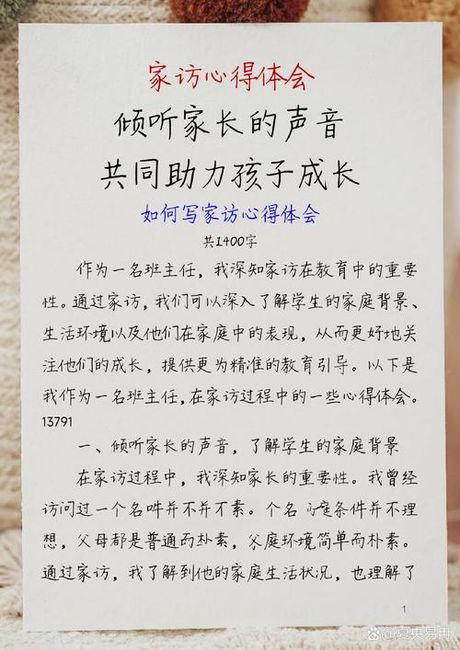 家访心得体会
倾听家长的声音
共同助力孩子成长
如何写家访心得体会
共1400字
作为一名班主任，我深知家访在教育中的重要
性。通过家访，我们可以深入了解学生的家庭背景、
生活环境以及他们在家庭中的表现，从而更好地关
注他们的成长，提供更为精准的教育引导。以下是
我作为一名班主任，在家访过程中的一些心得体会。
13791
一、倾听家长的声音，了解学生的家庭背景
在家访过程中，我深知家长的重要性。我曾经
访问过一个名吽并不并不素。个名 庭条件并不理
想，父母都是普通而朴素，父庭环境简单而朴素。
通过家访，我了解到他的家庭生活状况，也理解了
1